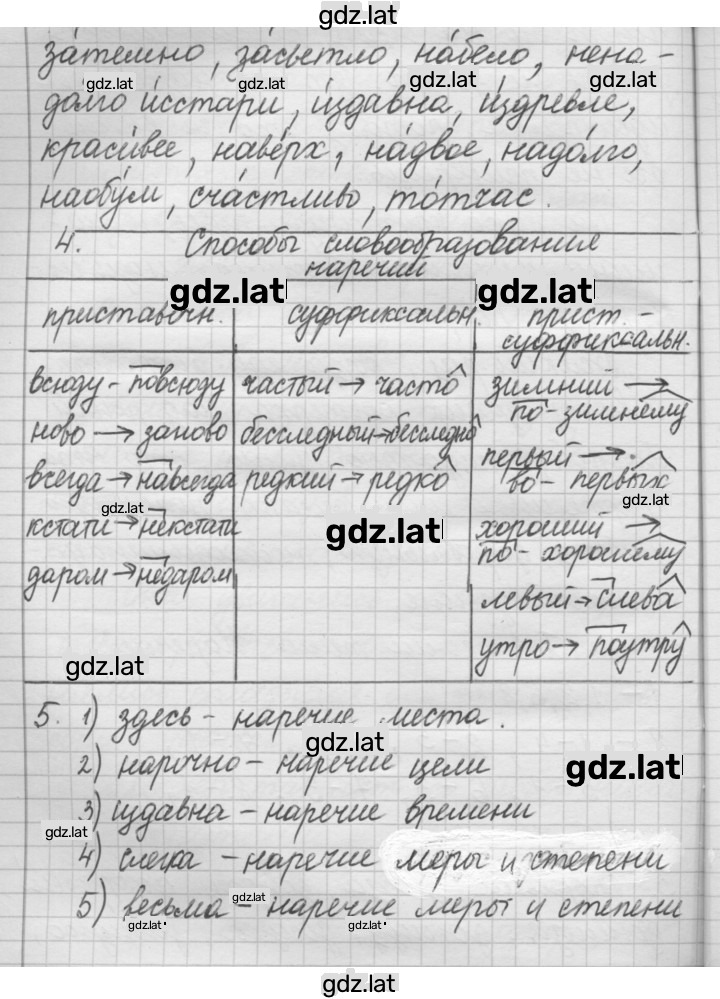 gdz.lat
затемно, засветло, набело, нена-
gdz.lat gdz.lat gdz.lat gdz.lat
долго исстари, издавна, издревле,
красивее, наверх, надвое, надолго,
наобум, счастливо, тотчас.
4. Способы словообразования
наречий
gdz.lat gdz.lat
приставочн. суффиксальн. прист.-
суффиксальн.
всюду - повсюду частый → часто зимний →
по-зимнему
ново → заново бесследный → бесследно первый →
во-первых
всегда → навсегда редкий → редко
gdz.lat gdz.lat
кстати → некстати gdz.lat хороший →
по-хорошему
даром → недаром левый → слева
утро → поутру
gdz.lat
5. 1) здесь - наречие места.
gdz.lat
2) нарочно - наречие цели gdz.lat
3) издавна - наречие времени
gdz.lat
4) слегка - наречие меры и степени
gdz.lat
5) весьма - наречие меры и степени
gdz.lat gdz.lat
gdz.lat